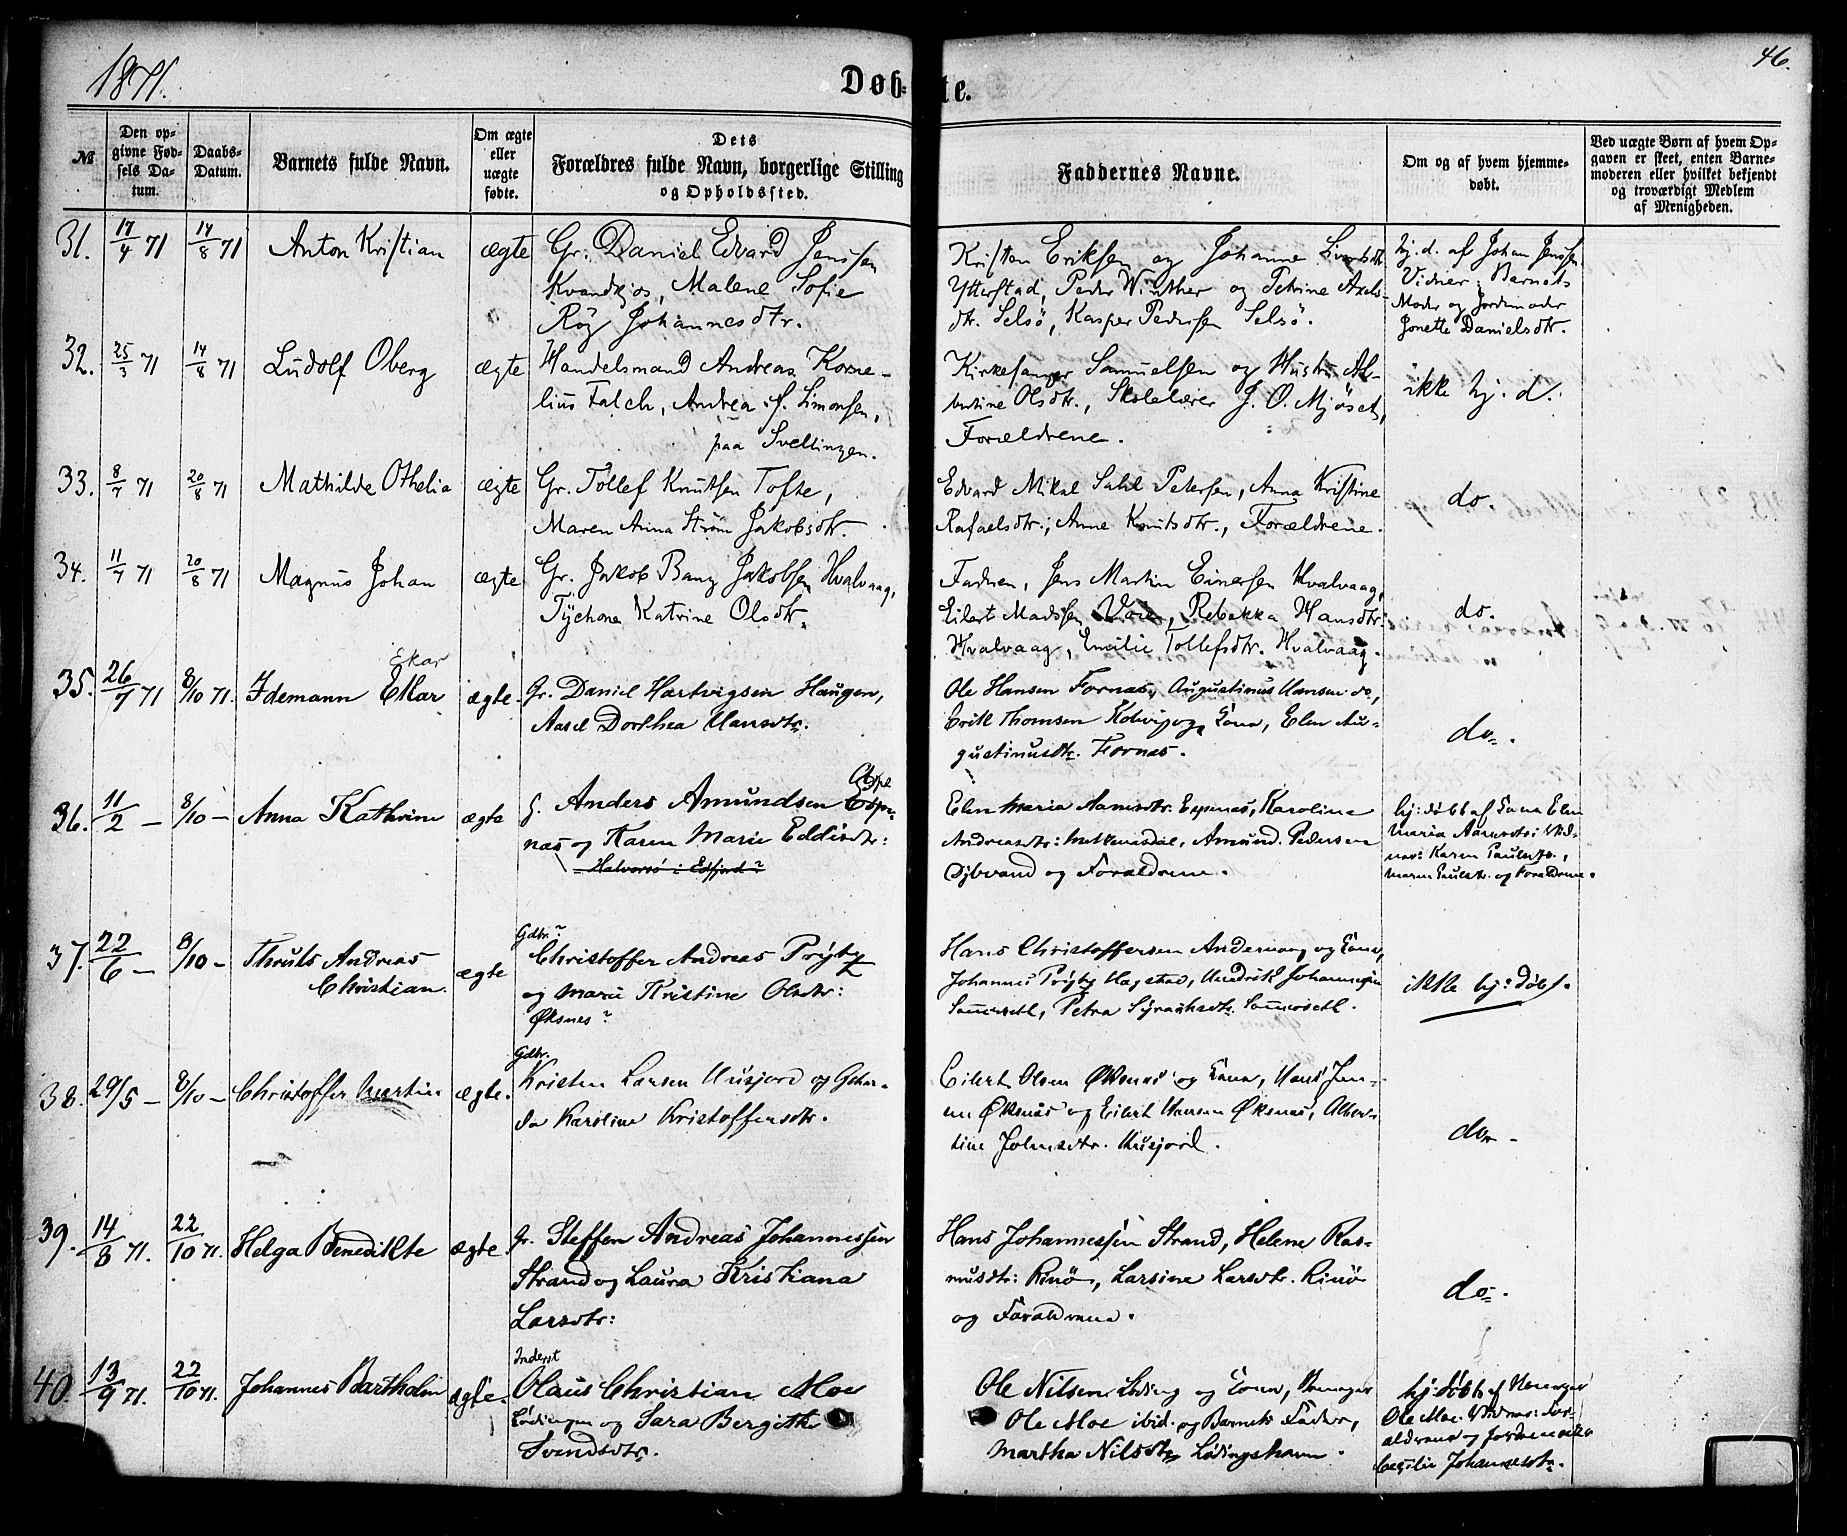 1871.
Døb-
te.
46.
№
Den opgivne Fødsels Datum.
Daabs-Datum.
Barnets fulde Navn.
Om ægte eller uægte fødte.
Dets
Forældres fulde Navn, borgerlige Stilling
og Opholdssted.
Faddernes Navne.
Om og af hvem hjemmedøbt.
Ved uægte Børn af hvem Opgaven er skeet, enten Barnemoderen eller hvilket bekjendt og troværdigt Medlem af Menigheden.
31. 17/4 71 14/8 71 Anton Kristian ægte Gr. Daniel Edvard Jenssen
Kvandkjos, Malene Sofie
Røy Johannesdtr.
Kristen Eriksen og Johanne
Ytterstad, Peder Winther og Petrine Axels-
dtr. Selsø, Kasper Pedersen Selsø.
hj. d. af Johan Jenssen
Vidner: Barnets
Moder og Jordemoder
Jonette Danielsdtr.
32. 25/3 71 14/8 71 Ludolf Oberg ægte Handelsmand Andreas Korne-
lius Falch, Andrea f. Simonsen,
paa Svellingen.
Kirkesanger Samuelsen og Hustru Al-
bertine Olsdtr., Skolelærer J. O. Mjøset,
Forældrene.
ikke hj. d.
33. 8/7 71 20/8 71 Mathilde Othelia ægte Gr. Tollef Knutsen Tofte,
Maren Anna Strøm Jakobsdtr.
Edvard Mikal Petersen, Anna Kristine
Rafaelsdtr., Anne Knutsdtr., Forældrene.
do.
34. 11/7 71 20/8 71 Magnus Johan ægte Gr. Jakob Banz Jakobsen Hvalvaag,
Tychone Katrine Olsdtr.
Fadren, Jens Martin Einersen Hvalvaag,
Eilert Madssen, Rebekka Hansdtr.
Hvalvaag, Emilie Tollefsdtr. Hvalvaag.
do.
Ekar
35. 26/7 71 8/10 71. Idemann Ekar ægte. Gr. Daniel Hartvigsen Haugen,
Aasel Dorthea Hansdtr.
Ole Hansen Fornæs, Augustinus Hansen do,
Erik Thomsen og Kona, Elen Au-
gustinusdtr. Fornæs.
do.
36. 11/2 — 8/10 — Anna Kathrine ægte G. Anders Amundsen Espe-
næs og Karen Marie Eddisdtr:
Halvorsø i Edsfjord?
Elen Maria Aamsdtr. Espenæs, Karoline
Andreasdtr: Amund Pedersen
Djbvand og Forældrene.
hj: døbt af Kona Elen
Maria Aamsdtr: Vid-
ner: Karen Paulsdtr.,
Maren Paulsdtr. og Forældrene.
37. 22/6 — 8/10 — Thruls Andreas
Christian. ægte
Gdbr.?
Christoffer Andreas Prÿtz
og Marie Kristine Olsdtr:
Øksnes?
Hans Christoffersen og Kona,
Johannes Prÿtz Hagstad, Hendrik Johannessen
Sommersetl, Petra Sommersetl.
ikke hj: døbt.
38. 29/5 — 8/10 — Christoffer Martin ægte.
Gdbr.
Kristen Larsen Husjord og Gehar-
da Karoline Kristoffersdtr.
Eilert Olsen Øksnæs og Kona, Hans Jen-
sen Øksnæs og Eilert Hansen Øksnæs, Alber-
tine Johnsdtr. Husjord.
do. -
39. 14/8 71. 22/10 71. Helga Benedikte ægte. Gr. Steffen Andreas Johannessen
Strand og Laura Kristiana
Larsdtr:
Hans Johannessen Strand, Helene Ras-
musdtr: Rinø, Larsine Larsdtr. Rinø
og Forældrene.
do.
40. 13/9 71. 22/10 71. Johannes Bartholm ægte.
Inderst
Olaus Christian Moe
Lødingen og Sara Bergitte
Svendsdtr.
Ole Nilsen Løding og Kona,
Ole Moe ibid. og Barnets Fader,
Martha Nilsdtr. Lødingshavn.
hj: døbt af
Ole Moe. Vidner: For-
ældrene og Jordemoder
Cecilie Johannesdtr.